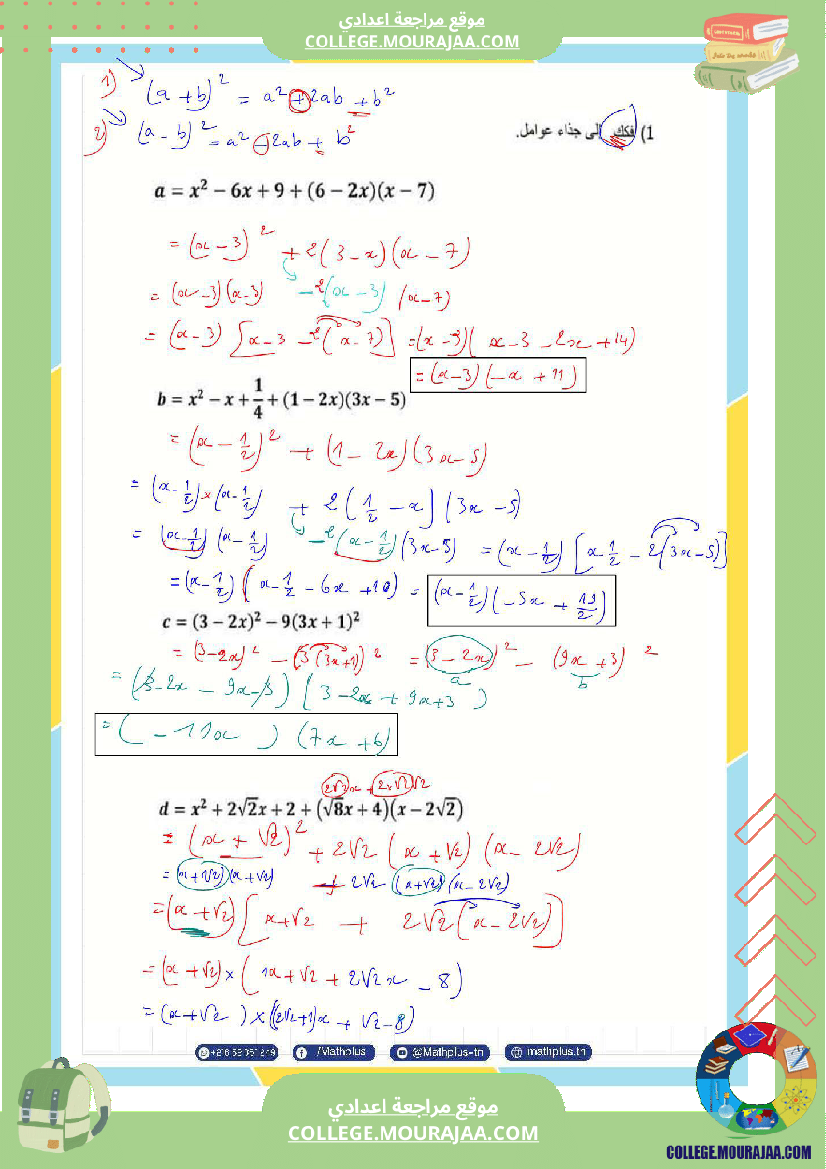 موقع مراجعة اعدادي
COLLEGE.MOURAJAA.COM
1) (a + b)² = a² + 2ab + b²
2) (a - b)² = a² - 2ab + b²
1) فكك إلى جذاء عوامل.
a = x² − 6x + 9 + (6 − 2x)(x − 7)
= (x - 3)² + 2(3 - x)(x - 7)
= (x - 3)(x - 3) - 2(x - 3)(x - 7)
= (x - 3)[x - 3 - 2(x - 7)] = (x - 3)(x - 3 - 2x + 14)
= (x - 3)(-x + 11)
b = x² − x + 1/4 + (1 − 2x)(3x − 5)
= (x - 1/2)² + (1 - 2x)(3x - 5)
= (x - 1/2) × (x - 1/2) + 2(1/2 - x)(3x - 5)
= (x - 1/2)(x - 1/2) - 2(x - 1/2)(3x - 5) = (x - 1/2)[x - 1/2 - 2(3x - 5)]
= (x - 1/2)(x - 1/2 - 6x + 10) = (x - 1/2)(-5x + 19/2)
c = (3 − 2x)² − 9(3x + 1)²
= (3 - 2x)² - (3(3x + 1))² = (3 - 2x)² - (9x + 3)²
a b
= (3 - 2x - 9x - 3)(3 - 2x + 9x + 3)
= (-11x)(7x + 6)
2√2x + 2×√2√2
d = x² + 2√2x + 2 + (√8x + 4)(x − 2√2)
= (x + √2)² + 2√2(x + √2)(x - 2√2)
= (x + √2)(x + √2) + 2√2(x + √2)(x - 2√2)
= (x + √2)[x + √2 + 2√2(x - 2√2)]
= (x + √2) × (1x + √2 + 2√2x - 8)
= (x + √2) × ((2√2 + 1)x + √2 - 8)
/Mathplus
@Mathplus-tn
mathplus.tn
موقع مراجعة اعدادي
COLLEGE.MOURAJAA.COM
COLLEGE.MOURAJAA.COM